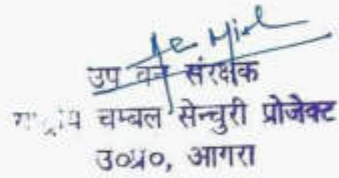 उप वन संरक्षक
चम्बल सेन्चुरी प्रोजेक्ट
उ०प्र०, आगरा